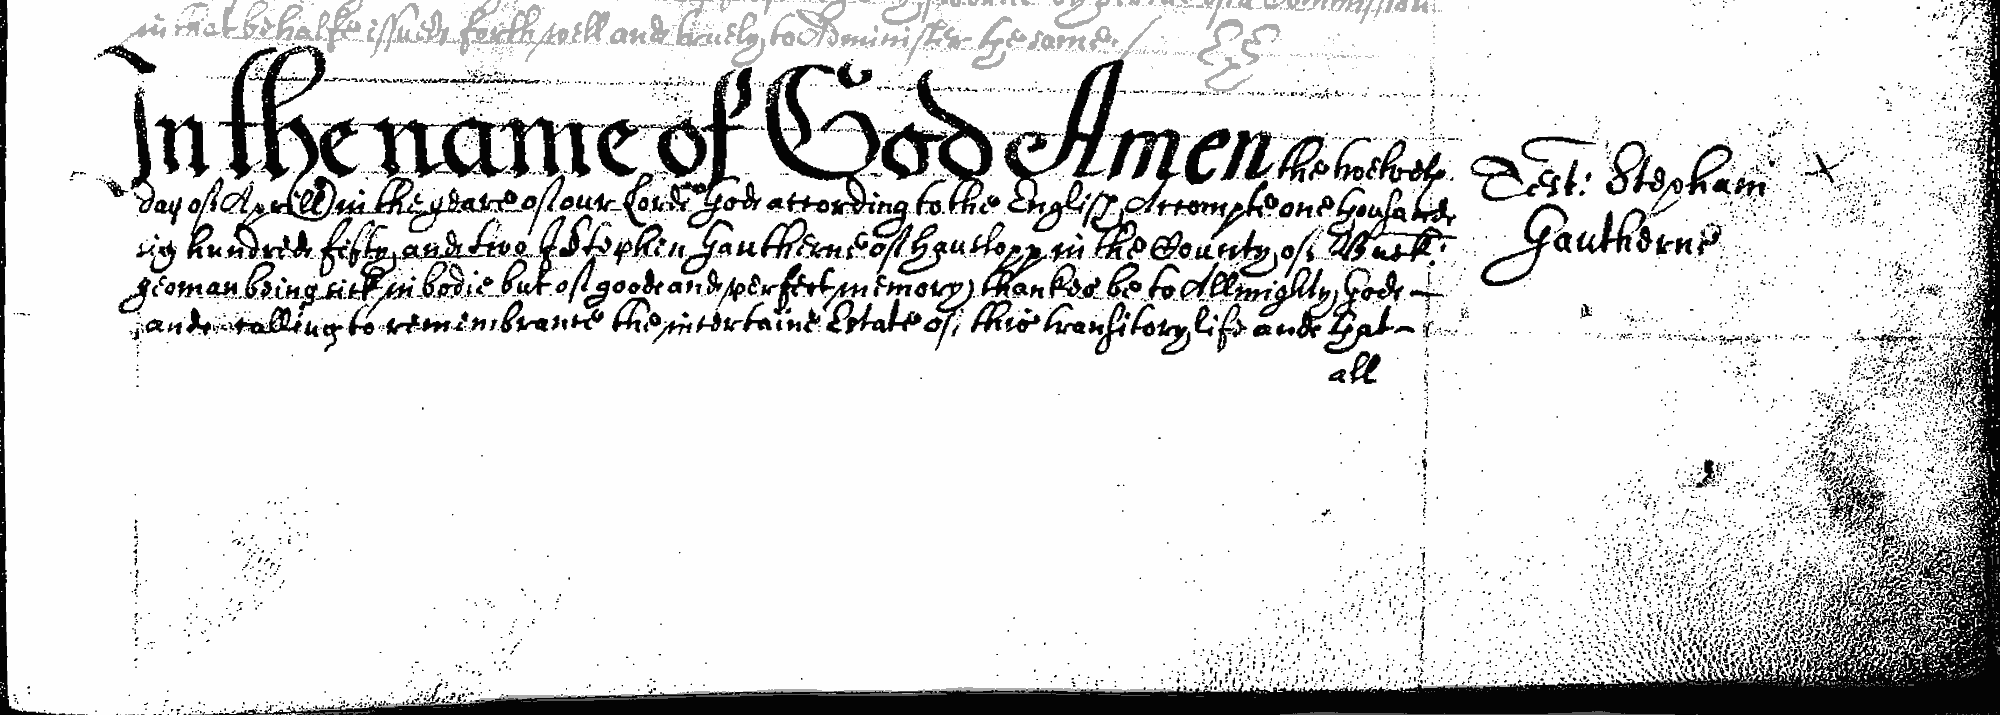 in that behalfe issued forth well and truely to Administer the same /
In the name of God Amen the twelveth
day of Aprill in the yeare of our Lord God according to the English Accompte one thousand
six hundred fifty and two I Stephen Gautherne of Hanslopp in the County of Buck:
yeoman being sick in bodie but of good and perfect memory thankes be to Allmighty God
and calling to remembrance the incertaine Estate of this transitory life and that
all
Test: Stephani
Gautherne